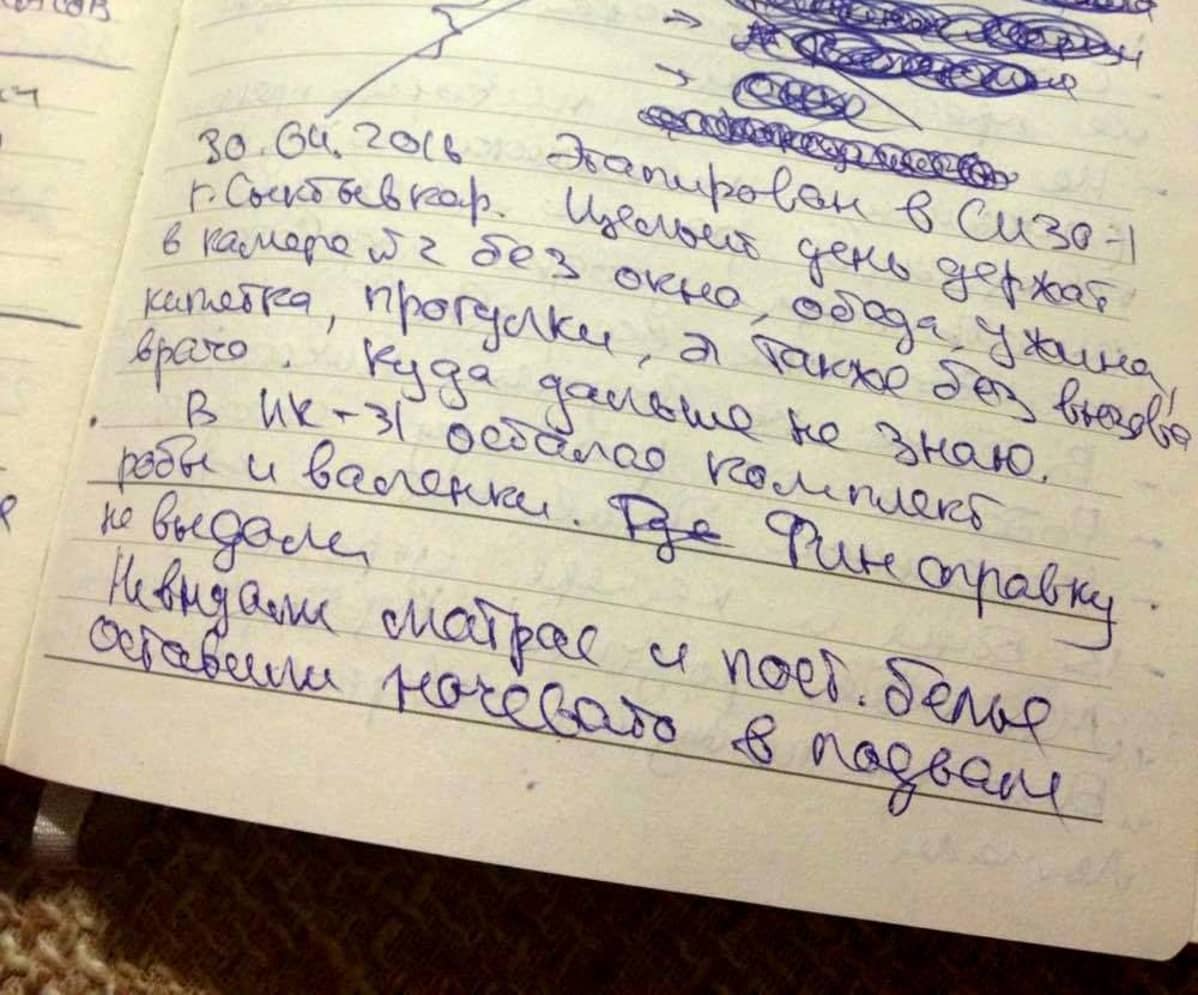 30.04.2016 Этапирован в СИЗО-1
г. Сыктывкар. Целый день держат
в камере №2 без окно, обеда, ужина,
кипятка, прогулки, а также без вызова
врача. Куда дальше не знаю.
В ИК-31 остался комплект
робы и валенки. Где Фин справку
не выдали
Не выдали матрас и пост. белье
оставили ночевать в подвале